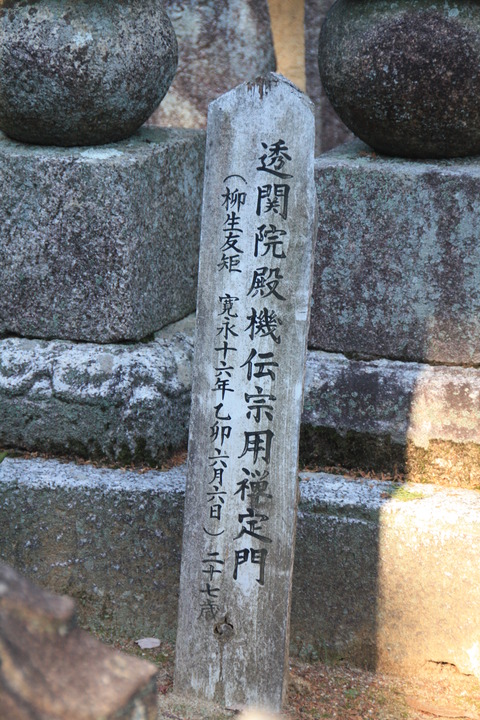 透関院殿機伝宗用禅定門
（柳生友矩　寛永十六年乙卯六月六日）二十七歳